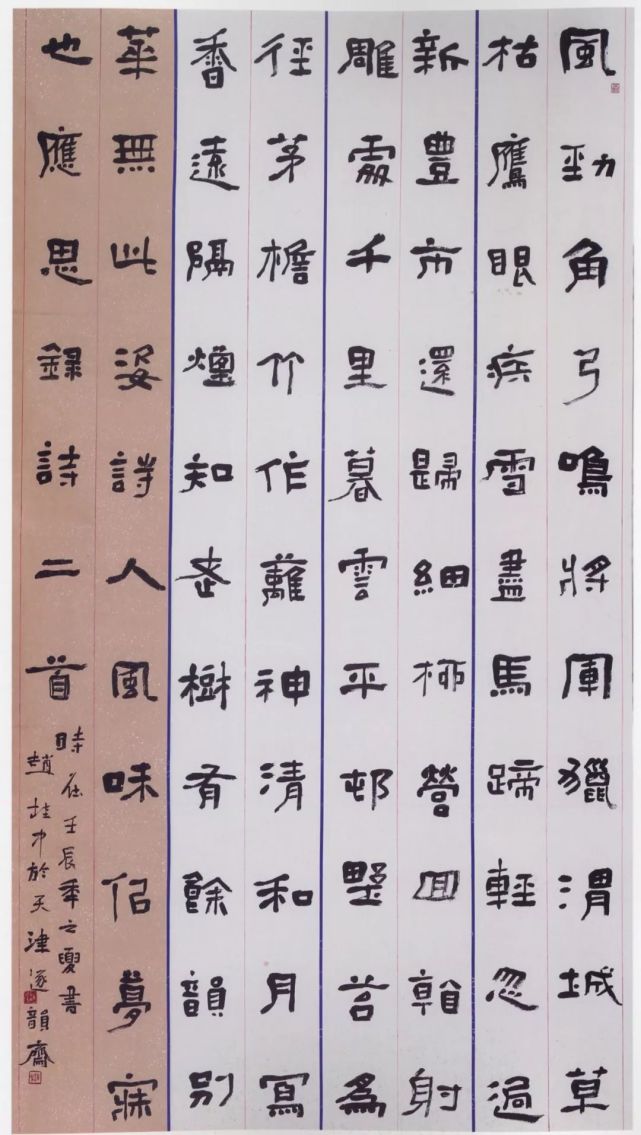 風勁角弓鳴將軍獵渭城草
枯鷹眼疾雪盡馬蹄輕忽過
新豐市還歸細柳營回看射
雕處千里暮雲平邨墅苔為
徑茅檐竹作籬神清和月寫
香遠隔煙知老樹有餘韻別
華無此姿詩人風味似夢寐
也應思錄詩二首
時在壬辰年之夏書
趙中於天津遂韻齋